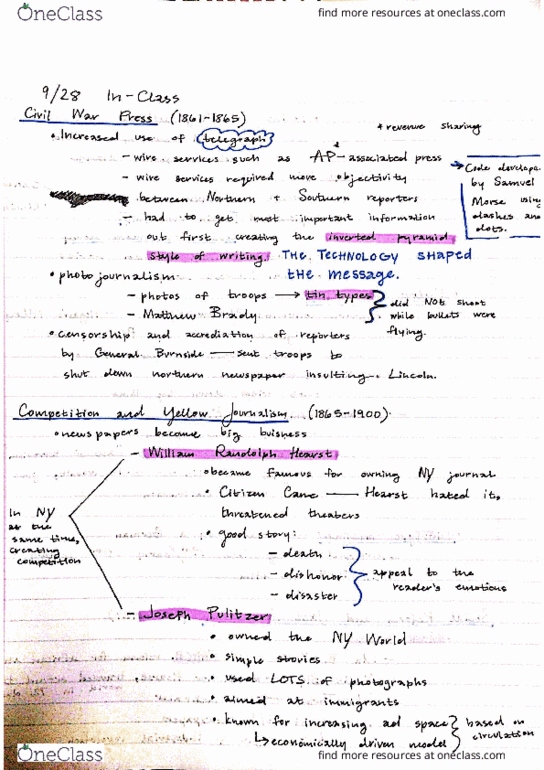 OneClass
find more resources at oneclass.com
9/28 In-Class
Civil War Press (1861-1865)
• Increased use of telegraph
+ revenue sharing
- wire services such as AP - associated press
→ Code develope
by Samuel
Morse using
dashes and
dots.
- wire services required more objectivity
between Northern + Southern reporters
- had to get most important information
out first creating the inverted pyramid
style of writing. THE TECHNOLOGY SHAPED
THE MESSAGE.
• photojournalism
- photos of troops → tin types
- Matthew Brady
did NOT shoot
while bullets were
flying.
• censorship and accrediation of reporters
by General Burnside — sent troops to
shut down northern newspaper insulting Lincoln.
Competition and Yellow Journalism. (1865-1900)
• newspapers become big buisness
- William Randolph Hearst
• became famous for owning NY journal
• Citizen Cane — Hearst hated it,
threatened theaters
• good story:
- death
- dishonor
- disaster
appeal to the
reader's emotions
In NY
at the
same time,
creating
competition
- Joseph Pulitzer
• owned the NY World
• simple stories
• used LOTS of photographs
• aimed at immigrants
• known for increasing ad space
↳ economically driven model
based on
circulation
OneClass
find more resources at oneclass.com